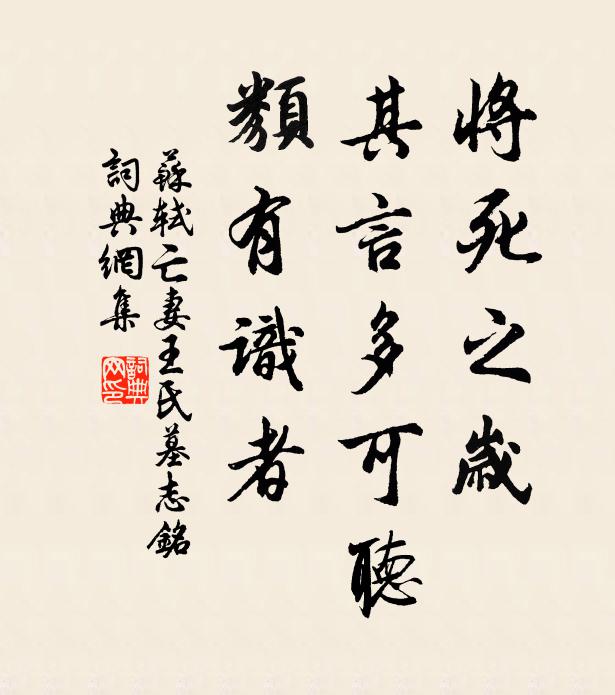 將死之歲
其言多可聽
類有識者
蘇軾亡妻王氏墓志銘
詞典網集
詞典网印